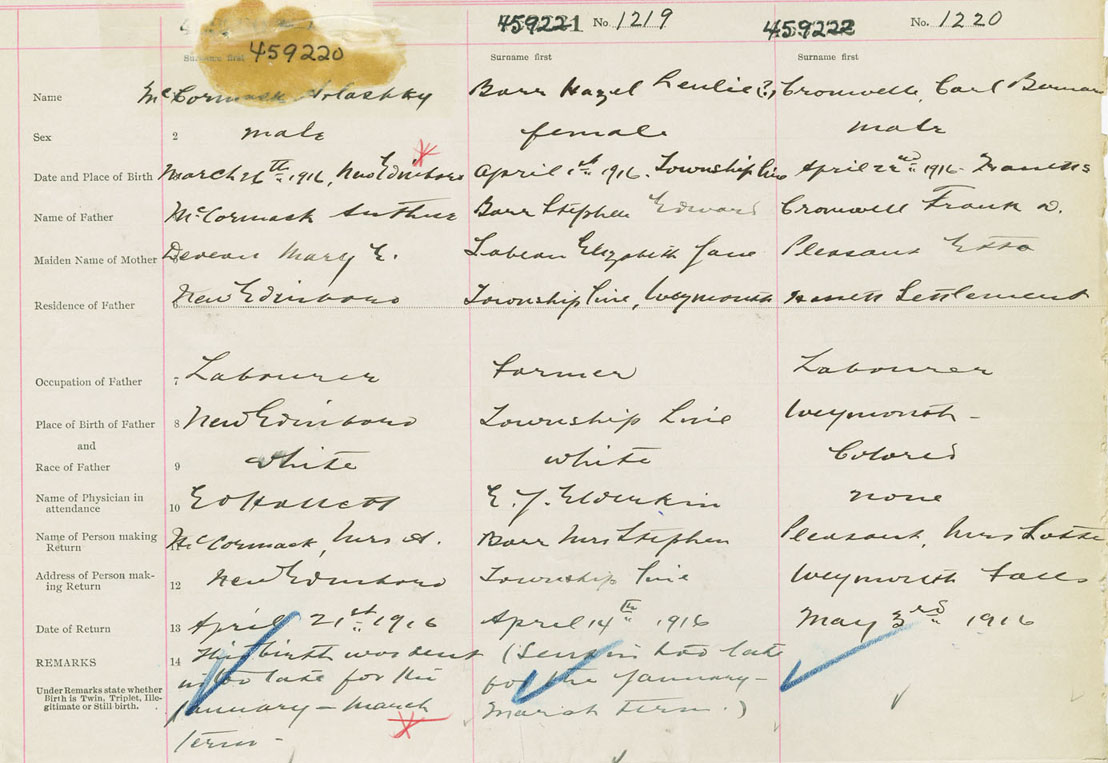 459220 459221 No. 1219 459222 No. 1220
Surname first Surname first Surname first
Name McCormack Barr Hazel Leulie (?) Cromwell, Carl Bernar
Sex 2 male female male
Date and Place of Birth March 26th 1916, New Edinboro April 1st 1916. Township line April 22nd 1916-
Name of Father McCormack Arthur Barr Stephen Edward Cromwell Frank D.
Maiden Name of Mother Deveau Mary E. Elizabeth Jane Pleasant Etta
Residence of Father 6 New Edinboro Township line, Weymouth Settlement
Occupation of Father 7 Labourer Farmer Labourer
Place of Birth of Father 8 New Edinboro Township Line Weymouth -
and
Race of Father 9 white white Colored
Name of Physician in
attendance 10 E. F. Elderkin none
Name of Person making
Return 11 McCormack, Mrs A. Barr Mrs Stephen Pleasant, Mrs
Address of Person mak-
ing Return 12 New Edinboro Township line Weymouth Falls
Date of Return 13 April 21st 1916 April 14th 1916 May 3rd 1916
REMARKS 14 This birth was sent (Sent in too late
Under Remarks state whether
Birth is Twin, Triplet, Ille-
gitimate or Still birth.
in too late for the for the January -
January - March March Term.)
term -